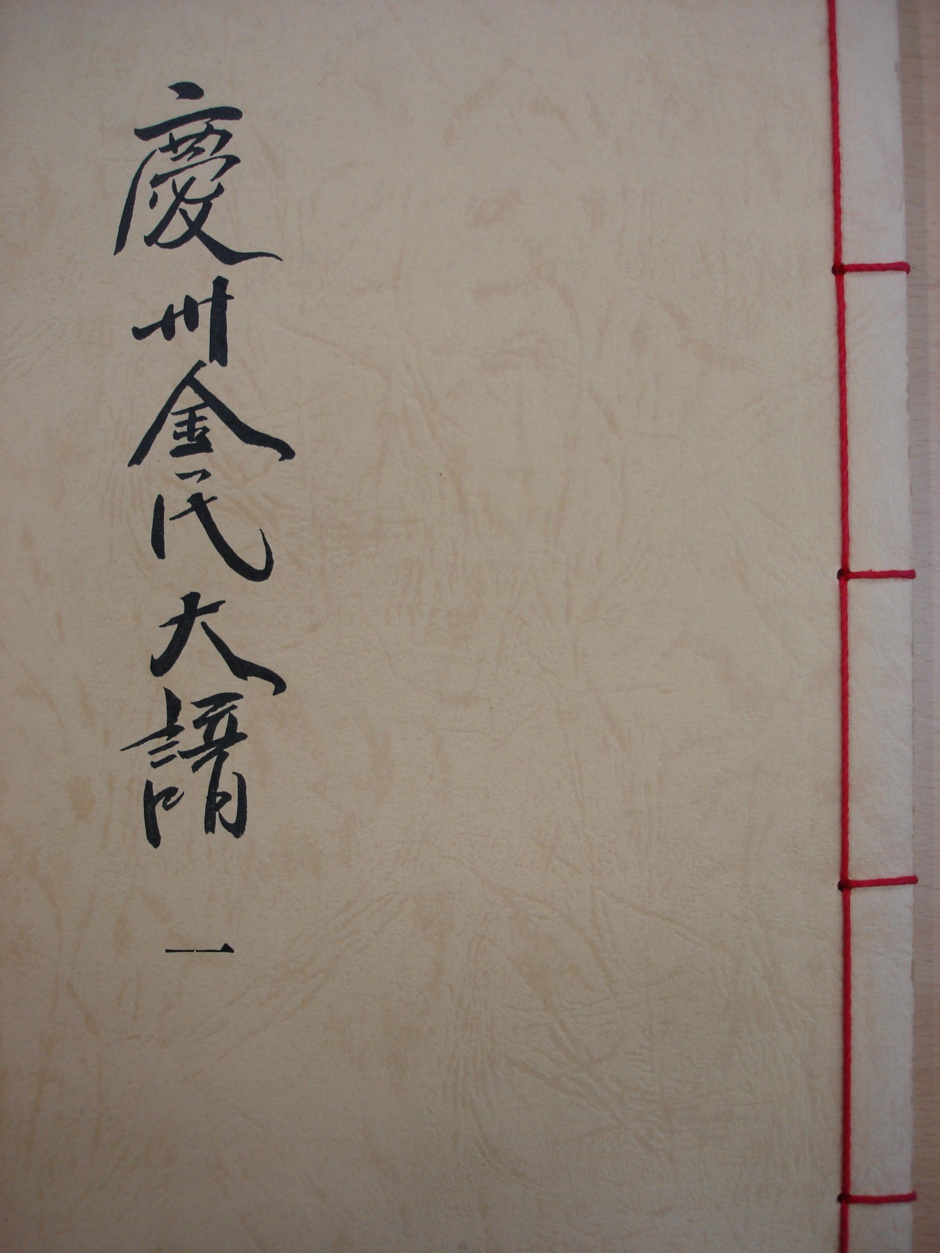 慶州金氏大譜
一